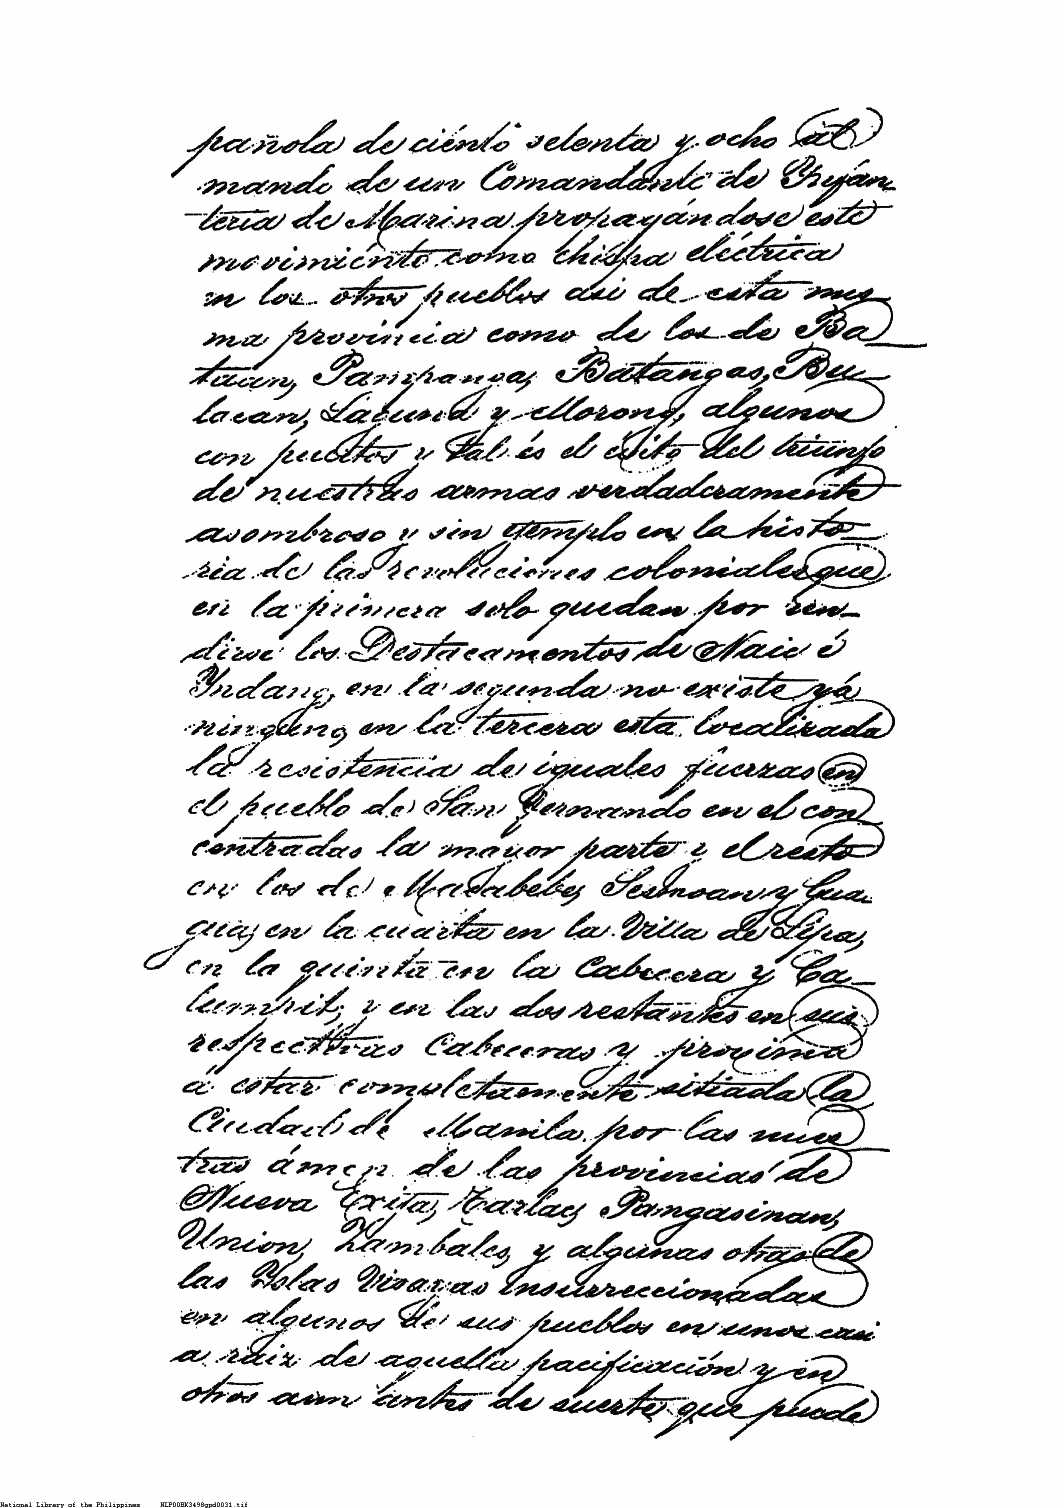 pañola de ciénto setenta y ocho al
mando de un Comandante de Ynfán-
teria de Marina propagándose este
movimiénto como chispa eléctrica
en los otros pueblos asi de esta mis
ma provincia como de los de Ba
taan, Pampanga, Batangas, Bu
lacan, Laguna y Morong, algunos
con puertos y tal és el éxito del triunfo
de nuestras armas verdaderamente
asombroso y sin ejemplo en la histo-
ria de las revoluciones coloniales que
en la primera solo quedan por ren-
dirse los Destacamentos de Naic é
Yndang, en la segunda no existe yá
ninguno, en la tercera esta localizada
la resistencia de iguales fuerzas en
el pueblo de San Fernando en el con
centradas la mayor parte y el resto
en los de Macabebe, Sesmoan y Gua-
gua, en la cuarta en la Villa de Lipa,
en la quinta en la Cabecera y Ca-
lumpit, y en las dos restantes en sus
respectivas Cabeceras y proxima
á estar completamente sitiada la
Ciudad de Manila por las nues
tras ámen de las provincias de
Nueva Exija, Tarlac, Pangasinan,
Union, Zambales, y algunas otras de
las Yslas Visayas insurreccionadas
en algunos de sus pueblos en unos casi
a raiz de aquella pacificación y en
otros aun ántes de suerte que puede
National Library of the Philippines NLP00BK3498gpd0031.tif